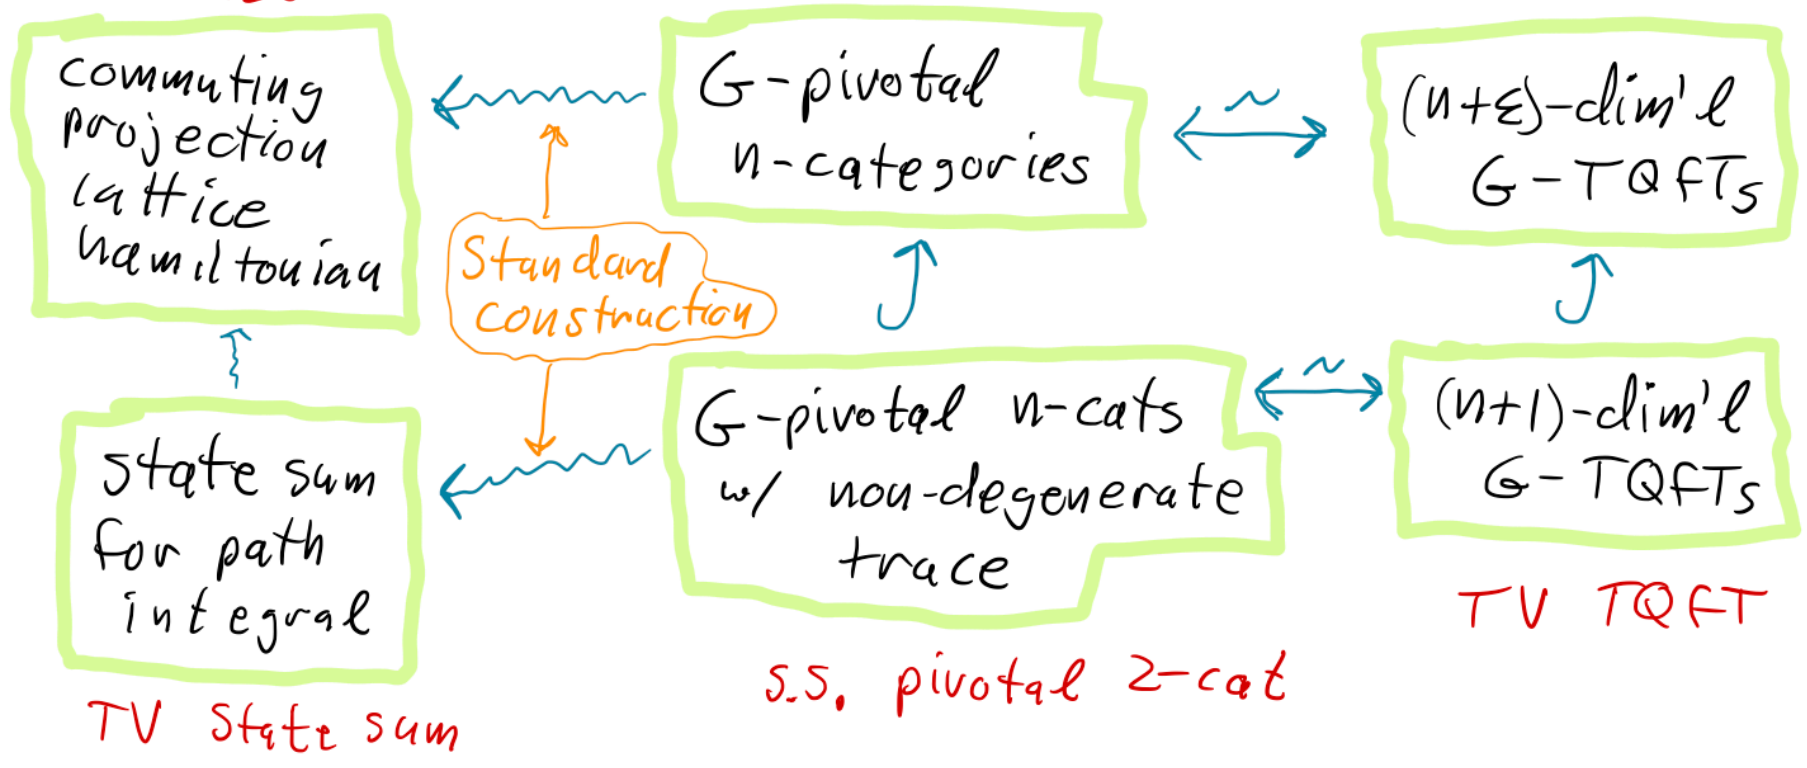 commuting
projection
lattice
hamiltonian
G-pivotal
n-categories
~
(n+ε)-dim'l
G-TQFTs
Standard
construction
state sum
for path
integral
G-pivotal n-cats
w/ non-degenerate
trace
~
(n+1)-dim'l
G-TQFTs
TV TQFT
s.s. pivotal 2-cat
TV state sum